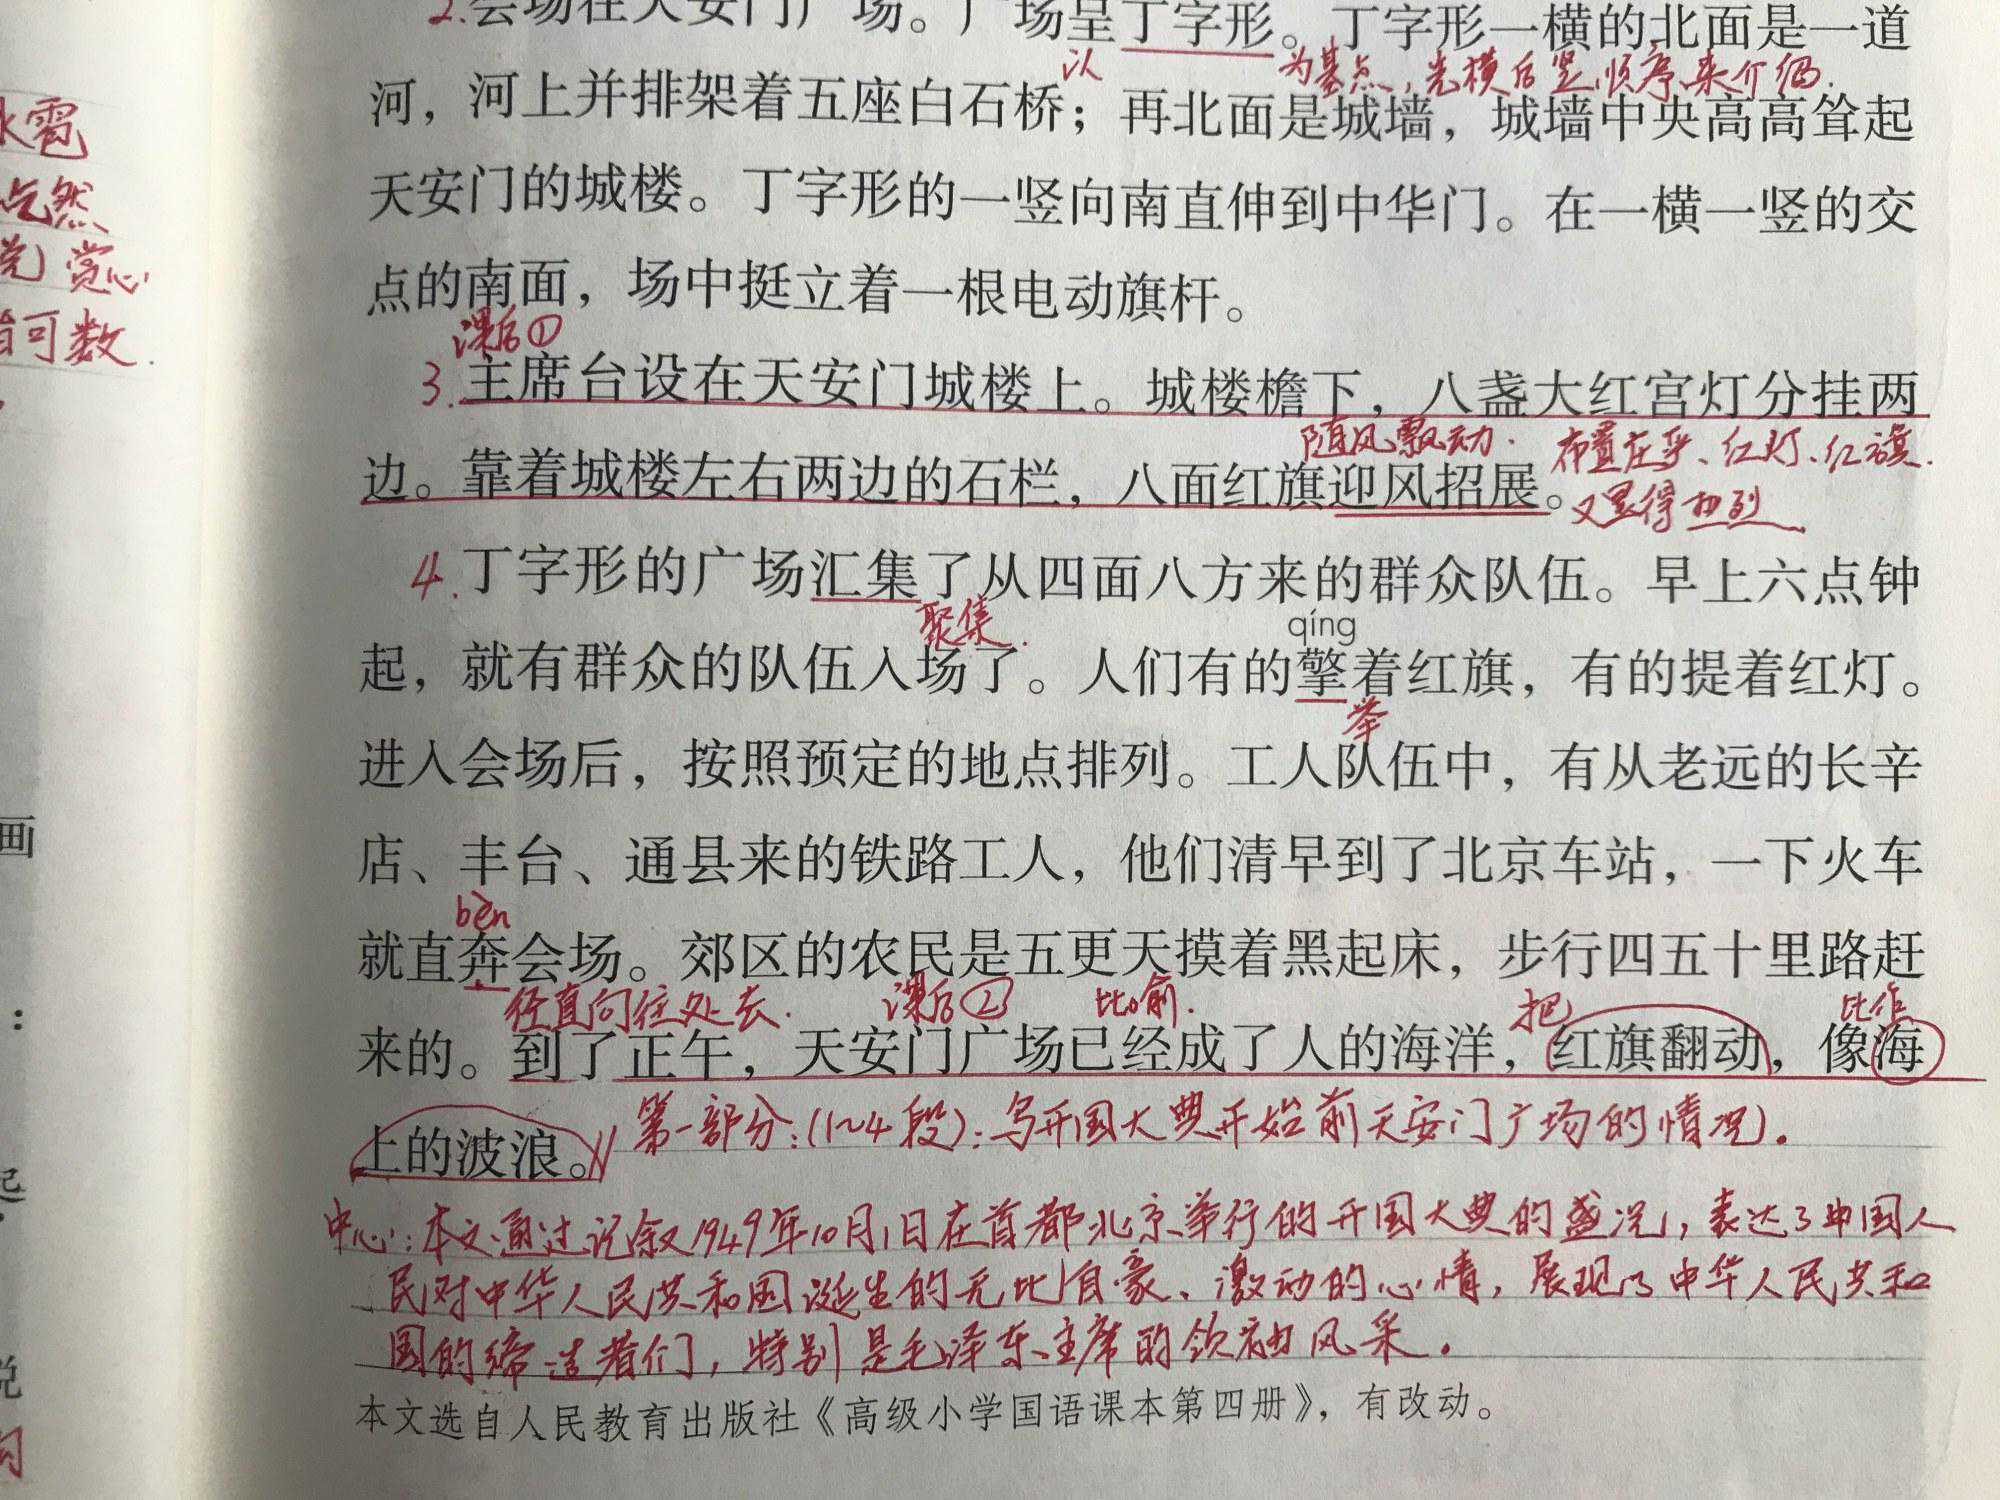 2.会场在天安门广场。广场呈丁字形。丁字形一横的北面是一道
以 为基点,先横后竖顺序来介绍.
河，河上并排架着五座白石桥；再北面是城墙，城墙中央高高耸起
天安门的城楼。丁字形的一竖向南直伸到中华门。在一横一竖的交
点的南面，场中挺立着一根电动旗杆。
课后①
3.主席台设在天安门城楼上。城楼檐下，八盏大红宫灯分挂两
随风飘动. 布置庄严、红灯、红旗.
边。靠着城楼左右两边的石栏，八面红旗迎风招展。
又显得热烈
4.丁字形的广场汇集了从四面八方来的群众队伍。早上六点钟
聚集. qíng
起，就有群众的队伍入场了。人们有的擎着红旗，有的提着红灯。
举
进入会场后，按照预定的地点排列。工人队伍中，有从老远的长辛
店、丰台、通县来的铁路工人，他们清早到了北京车站，一下火车
bèn
就直奔会场。郊区的农民是五更天摸着黑起床，步行四五十里路赶
径直向往处去. 课后② 比喻. 把 比作
来的。到了正午，天安门广场已经成了人的海洋，红旗翻动，像海
上的波浪。// 第一部分:(1~4段):写开国大典开始前天安门广场的情况.
中心:本文通过记叙1949年10月1日在首都北京举行的开国大典的盛况,表达了中国人
民对中华人民共和国诞生的无比自豪、激动的心情,展现了中华人民共和
国的缔造者们,特别是毛泽东主席的领袖风采.
本文选自人民教育出版社《高级小学国语课本第四册》，有改动。
冰雹
然
赏心
可数.
画
：
起
说